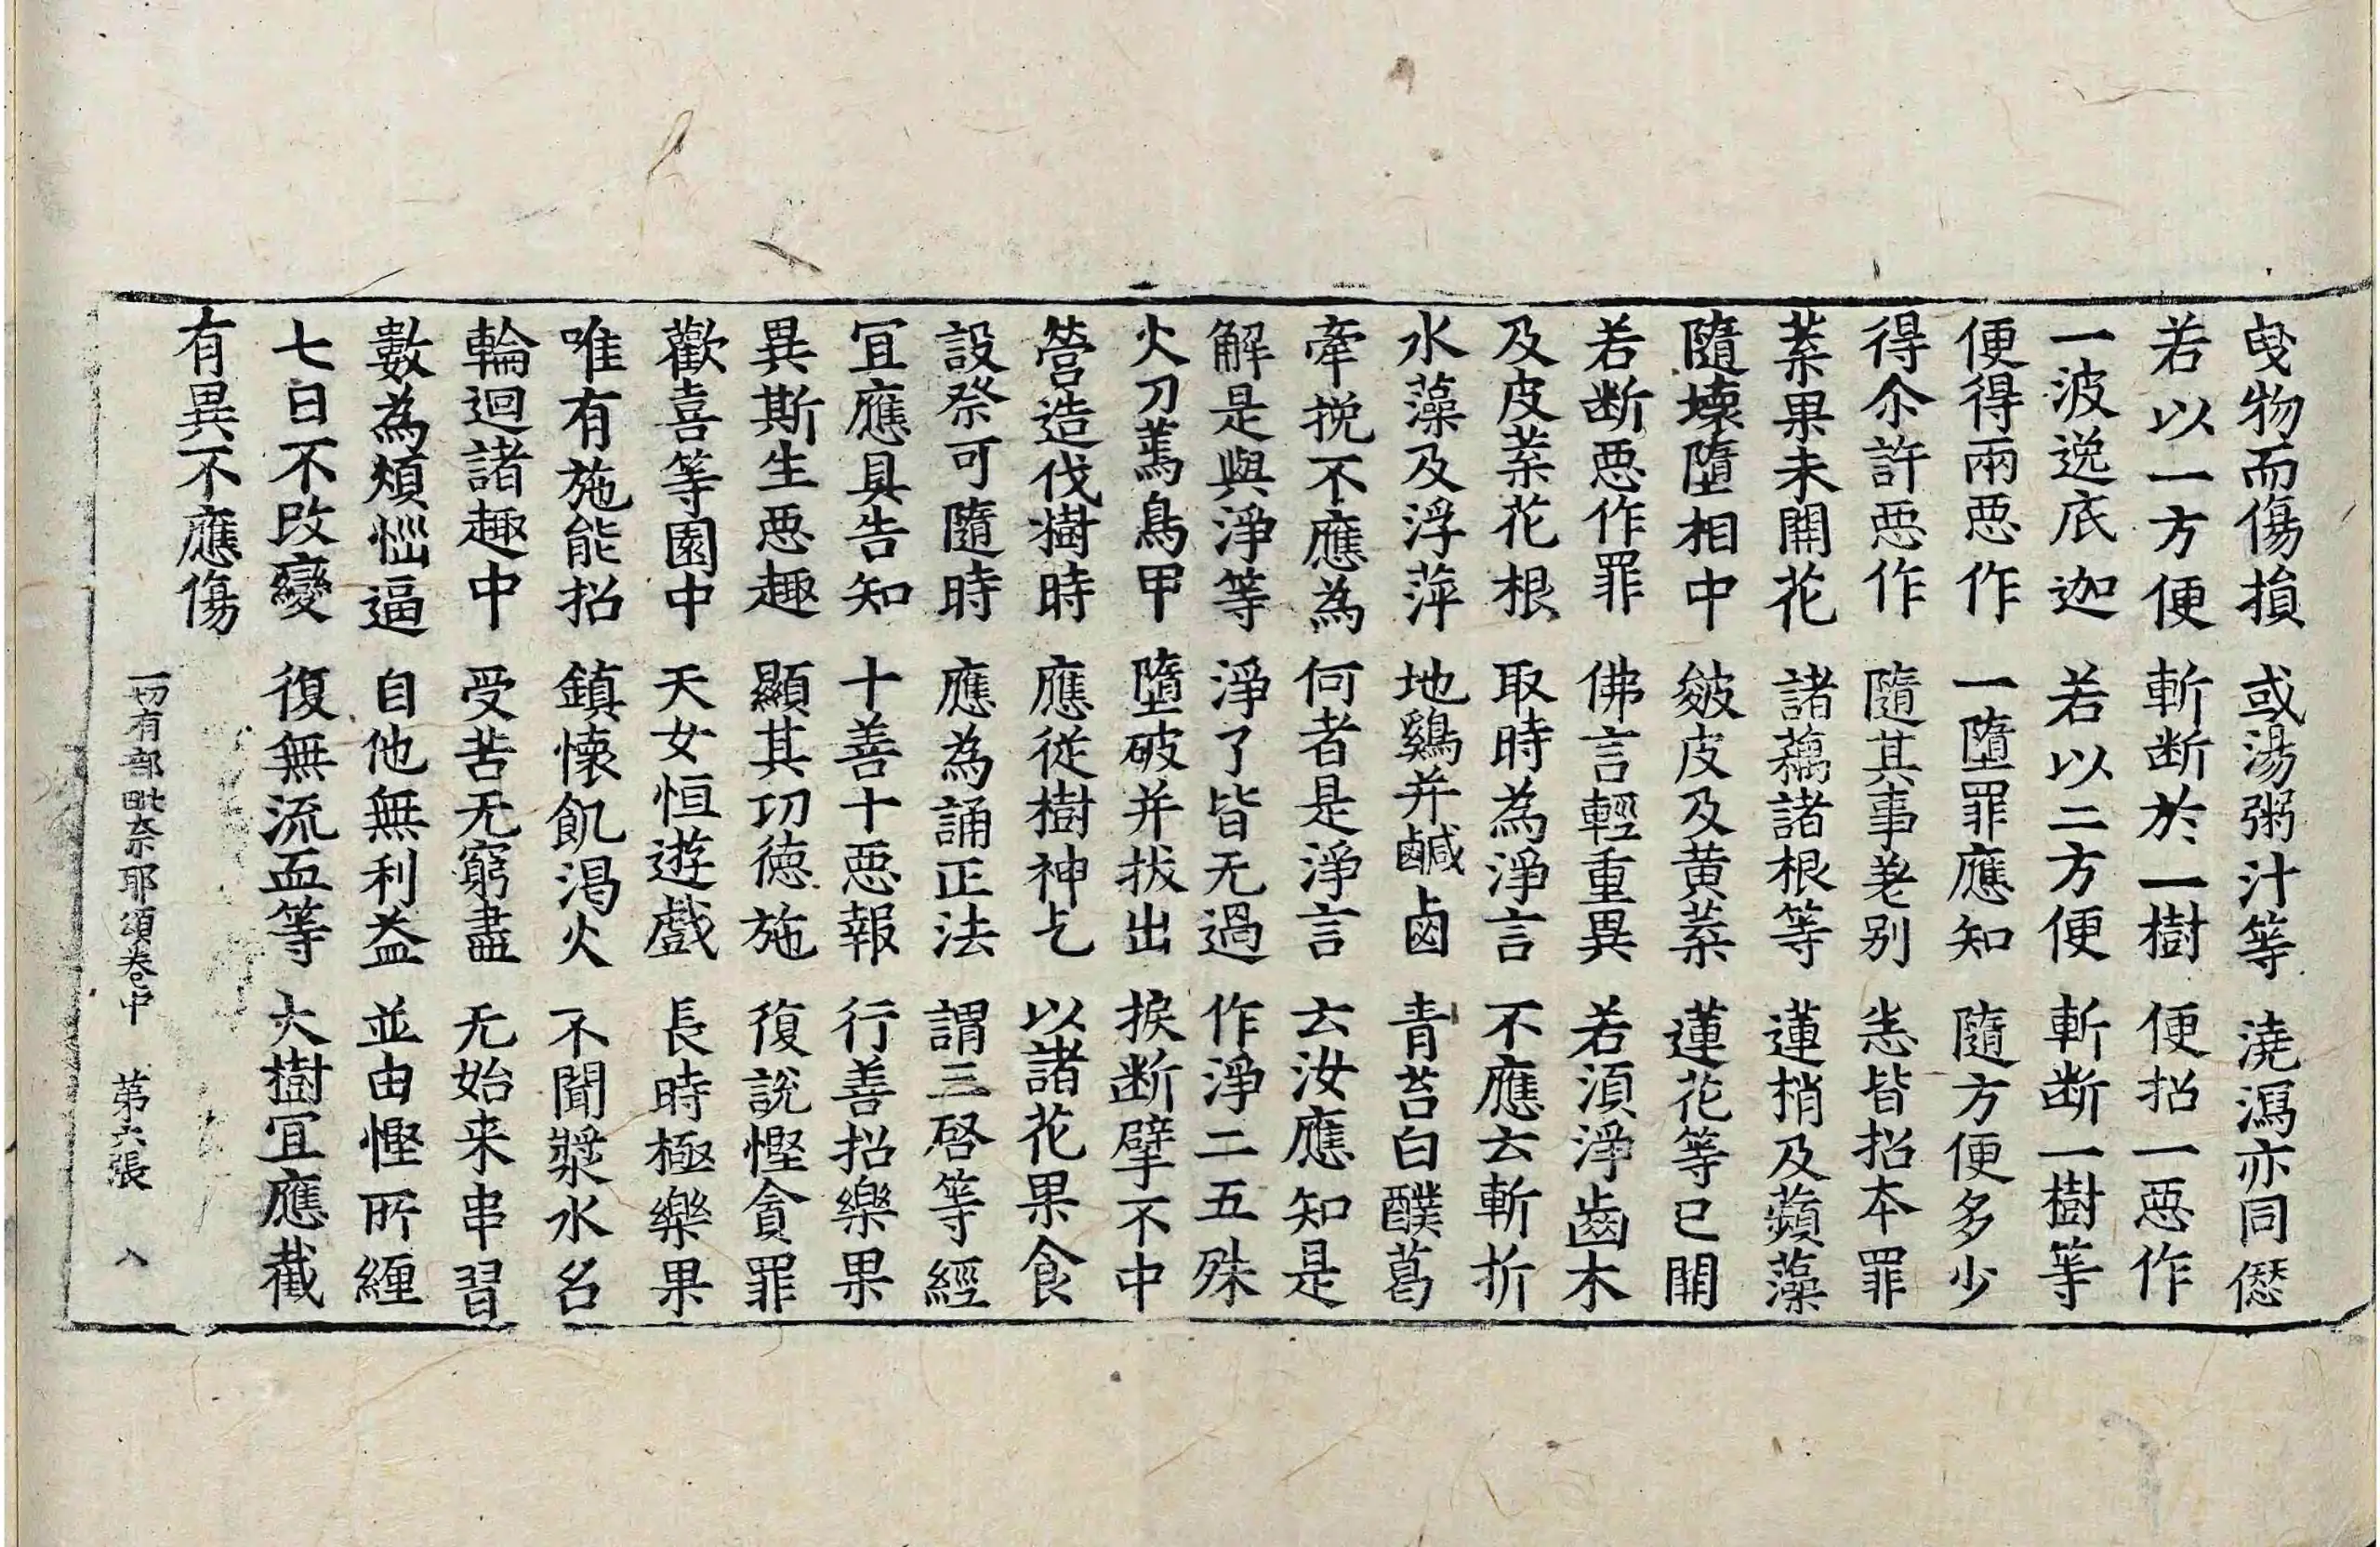 曳物而傷損 或湯粥汁等 澆瀉亦同愆
若以一方便 斬断於一樹 便招一惡作
一波逸底迦 若以二方便 斬断一樹等
便得兩惡作 一墮罪應知 隨方便多少
得尒許惡作 隨其事差别 恙皆招本罪
葉果未開花 諸藕諸根等 蓮梢及蘋藻
隨壞墮相中 皴皮及黃葉 蓮花等已開
若断惡作罪 佛言輕重異 若須淨齒木
及皮葉花根 取時為淨言 不應云斬折
水藻及浮萍 地鷄并鹹鹵 青苔白醭葛
牽挽不應為 何者是淨言 云汝應知是
解是與淨等 淨了皆无過 作淨二五殊
火刀蔫鳥甲 墮破并拔出 捩断擘不中
營造伐樹時 應從樹神乞 以諸花果食
設祭可隨時 應為誦正法 謂三啓等經
冝應具告知 十善十惡報 行善招樂果
異斯生惡趣 顯其功德施 復說慳貪罪
歡喜等園中 天女恒遊戲 長時極樂果
唯有施能招 鎮懷飢渴火 不聞漿水名
輪迴諸趣中 受苦无窮盡 无始来串習
數為煩惱逼 自他無利益 並由慳所纏
七日不改變 復無流血等 大樹冝應截
有異不應傷
一切有部毗奈耶頌卷中 第六張 入